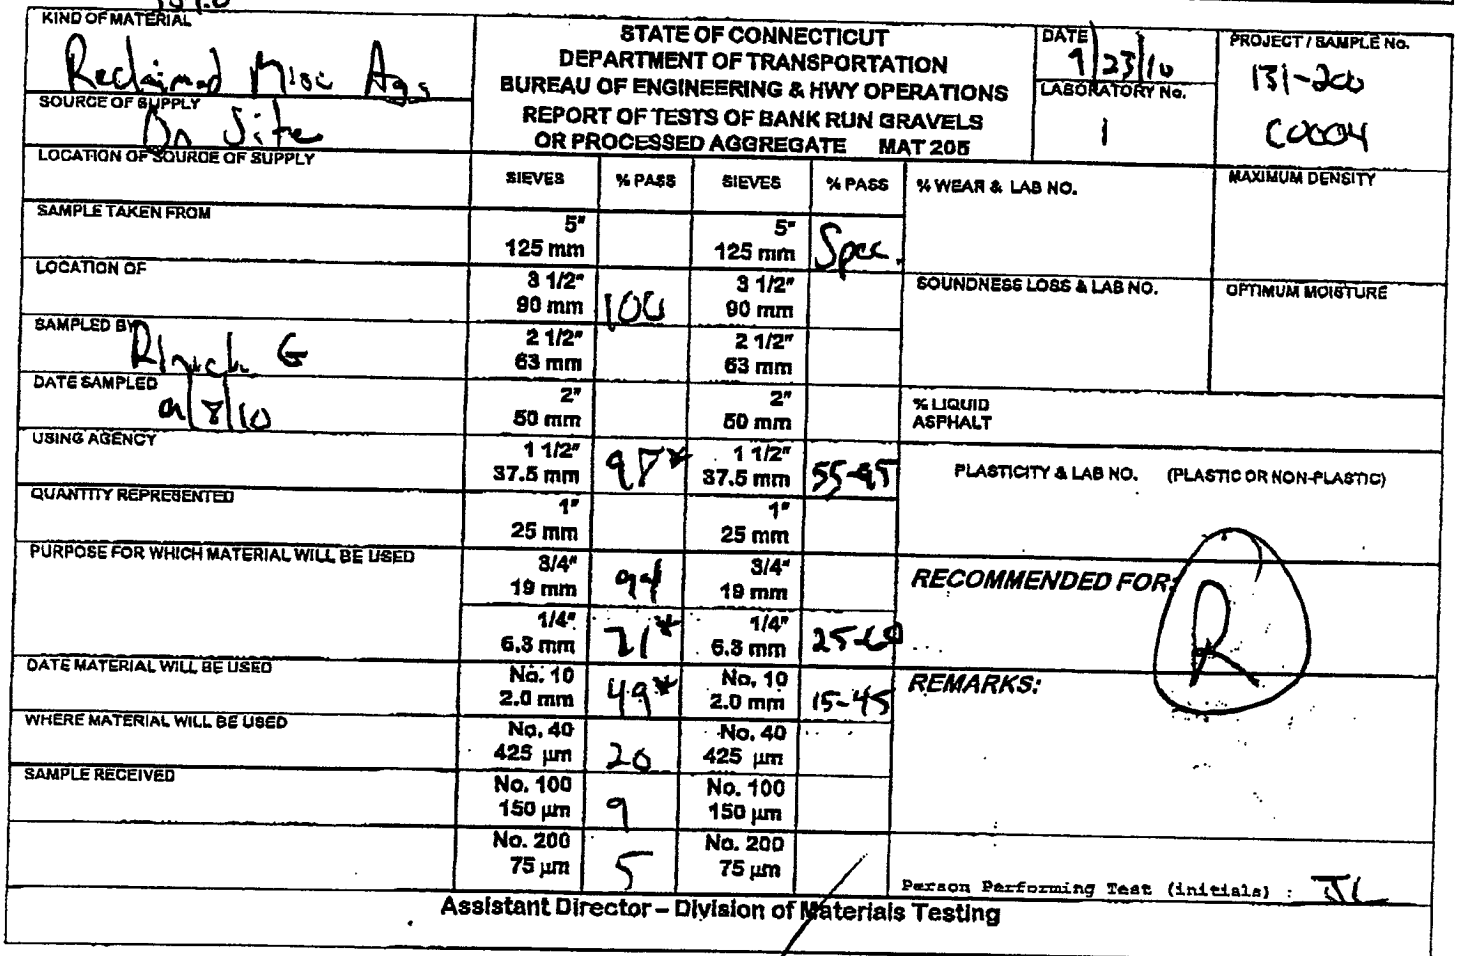 KIND OF MATERIAL
Reclaimed Misc Agg
SOURCE OF SUPPLY
On Site
LOCATION OF SOURCE OF SUPPLY
SAMPLE TAKEN FROM
LOCATION OF
SAMPLED BY
G
DATE SAMPLED
9/8/10
USING AGENCY
QUANTITY REPRESENTED
PURPOSE FOR WHICH MATERIAL WILL BE USED
DATE MATERIAL WILL BE USED
WHERE MATERIAL WILL BE USED
SAMPLE RECEIVED
STATE OF CONNECTICUT
DEPARTMENT OF TRANSPORTATION
BUREAU OF ENGINEERING & HWY OPERATIONS
REPORT OF TESTS OF BANK RUN GRAVELS
OR PROCESSED AGGREGATE MAT 205
DATE
9/23/10
LABORATORY No.
1
PROJECT / SAMPLE No.
131-200
C0004
SIEVES % PASS SIEVES % PASS
5" 5"
125 mm 125 mm Spec.
3 1/2" 3 1/2"
90 mm 100 90 mm
2 1/2" 2 1/2"
63 mm 63 mm
2" 2"
50 mm 50 mm
1 1/2" 1 1/2"
37.5 mm 97* 37.5 mm 55-95
1" 1"
25 mm 25 mm
3/4" 3/4"
19 mm 94 19 mm
1/4" 1/4"
6.3 mm 71* 6.3 mm 25-60
No. 10 No. 10
2.0 mm 49* 2.0 mm 15-45
No. 40 No. 40
425 µm 20 425 µm
No. 100 No. 100
150 µm 9 150 µm
No. 200 No. 200
75 µm 5 75 µm
% WEAR & LAB NO.
MAXIMUM DENSITY
SOUNDNESS LOSS & LAB NO.
OPTIMUM MOISTURE
% LIQUID
ASPHALT
PLASTICITY & LAB NO. (PLASTIC OR NON-PLASTIC)
RECOMMENDED FOR:
R
REMARKS:
Person Performing Test (initials) : JL
Assistant Director – Division of Materials Testing